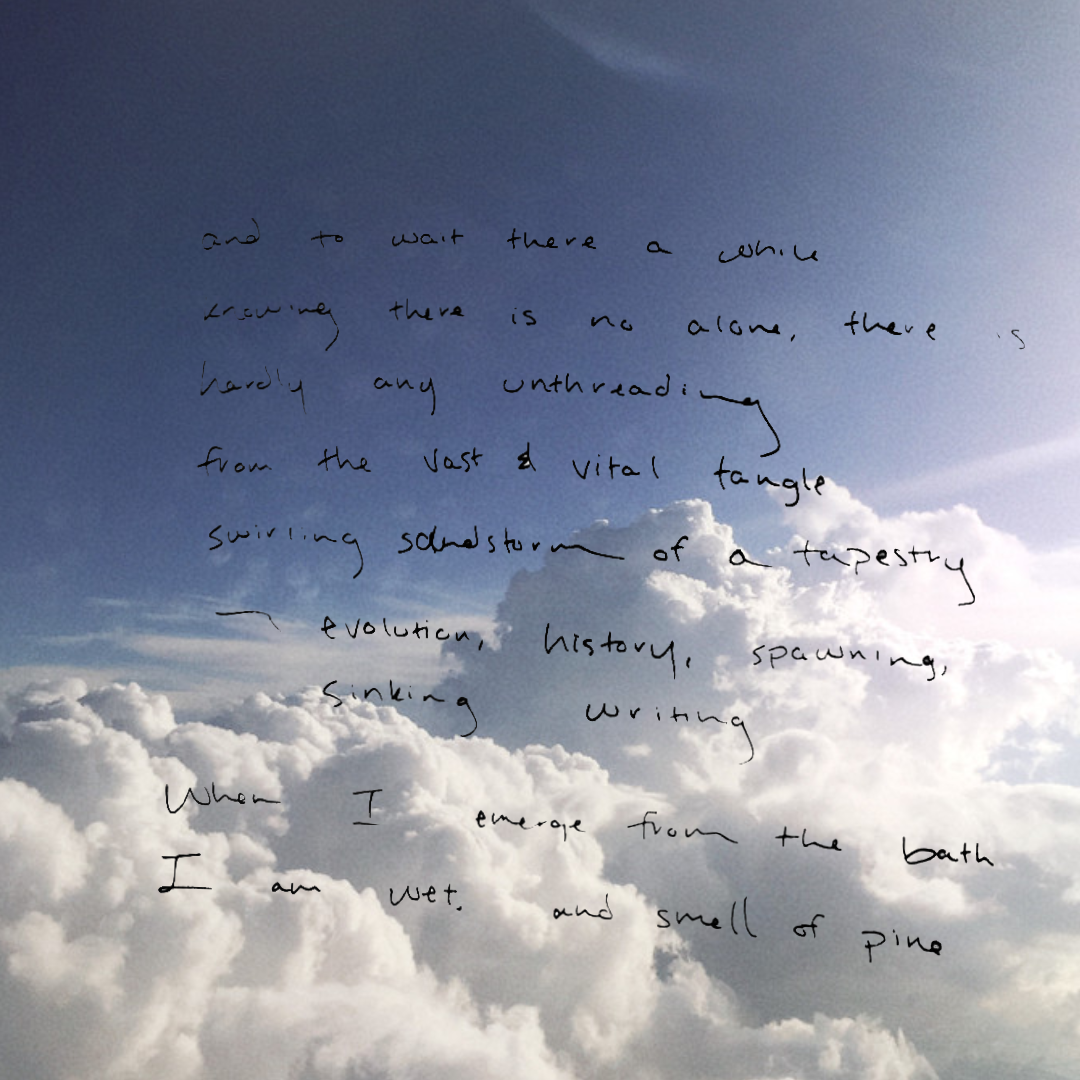 and to wait there a while
knowing there is no alone, there is
hardly any unthreading
from the vast & vital tangle
swirling sandstorm of a tapestry
— evolution, history, spawning,
sinking writing
When I emerge from the bath
I am wet. and smell of pine